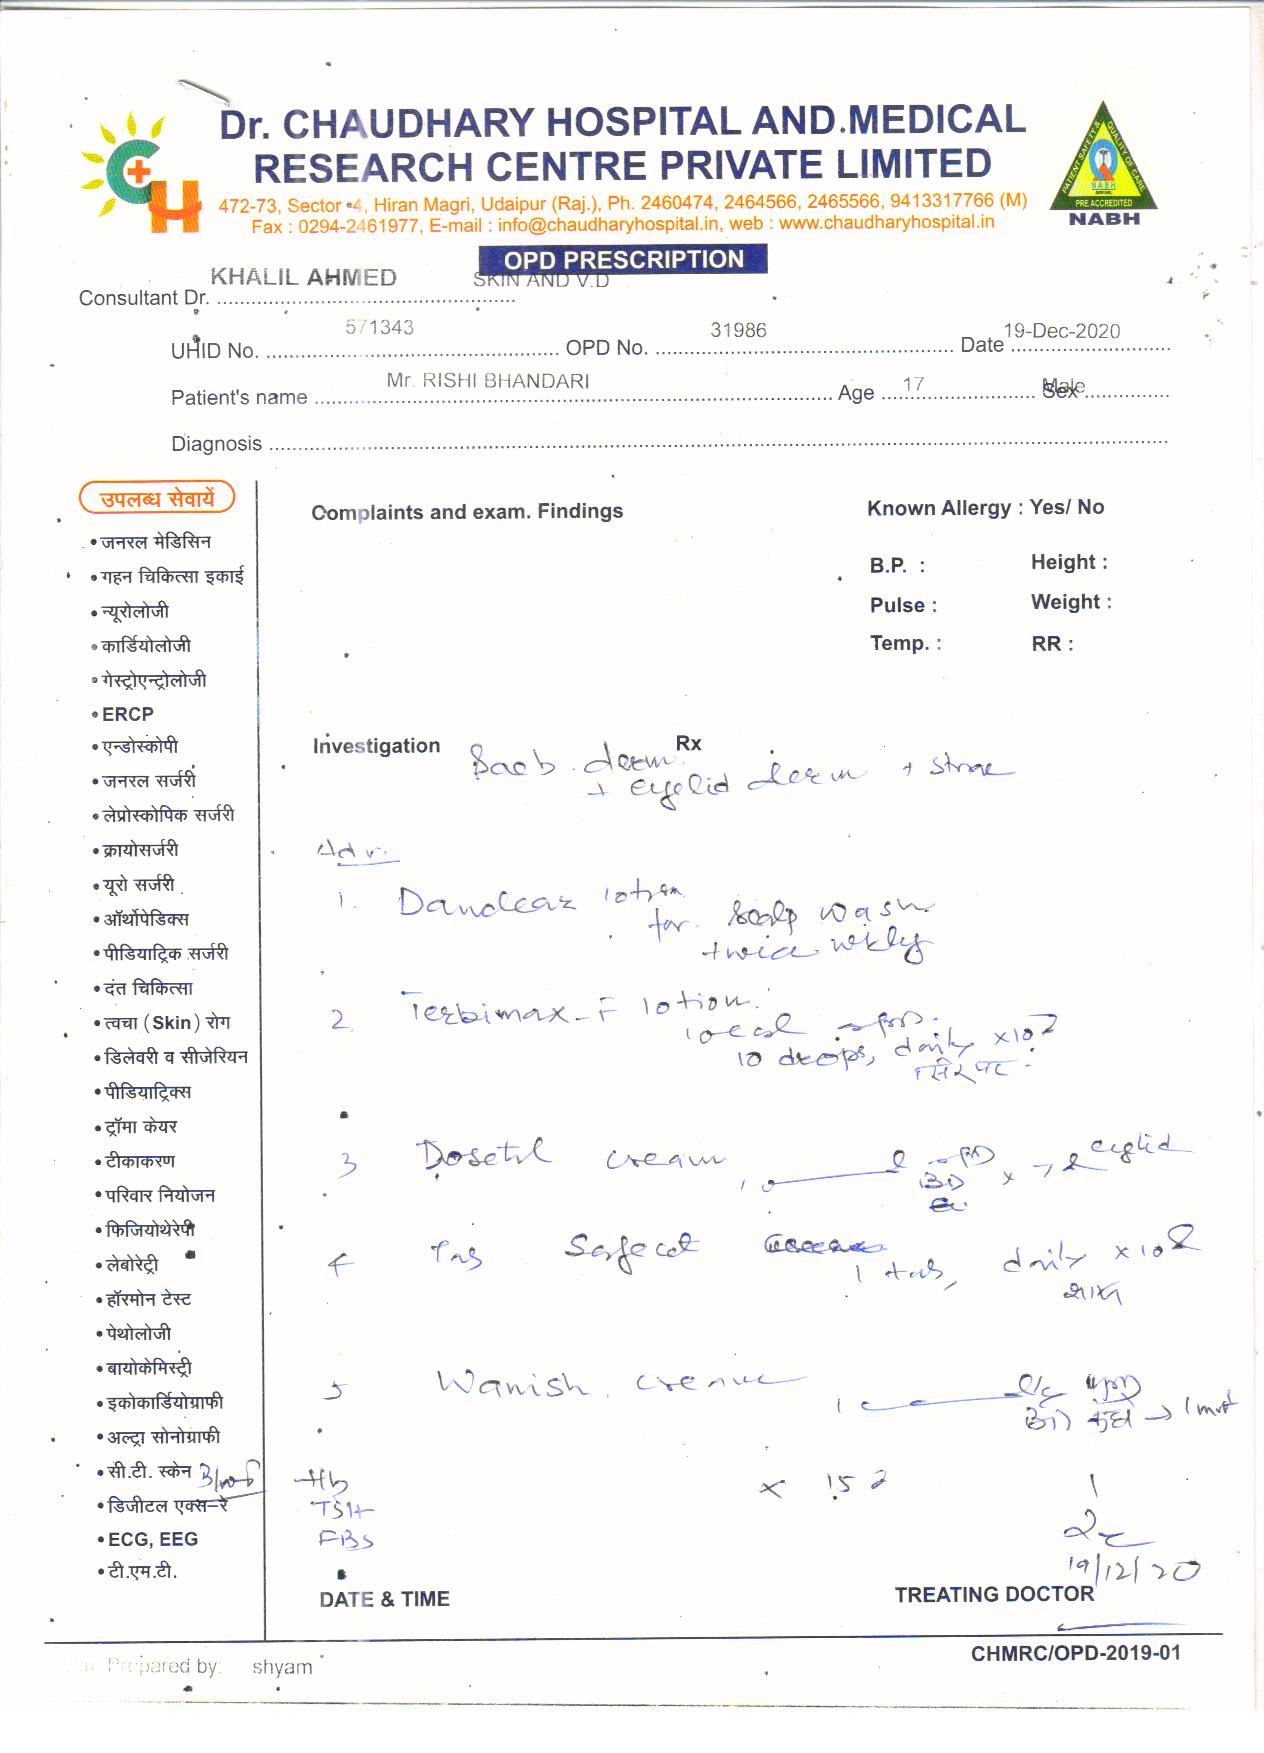 Dr. CHAUDHARY HOSPITAL AND MEDICAL
RESEARCH CENTRE PRIVATE LIMITED
472-73, Sector -4, Hiran Magri, Udaipur (Raj.), Ph. 2460474, 2464566, 2465566, 9413317766 (M)
Fax : 0294-2461977, E-mail : info@chaudharyhospital.in, web : www.chaudharyhospital.in
PATIENT SAFETY & QUALITY OF CARE
NABH
PRE ACCREDITED
NABH
OPD PRESCRIPTION
Consultant Dr. KHALIL AHMED SKIN AND V.D
UHID No. 571343 OPD No. 31986 Date 19-Dec-2020
Patient's name Mr. RISHI BHANDARI Age 17 Sex Male
Diagnosis
उपलब्ध सेवायें
• जनरल मेडिसिन
• गहन चिकित्सा इकाई
• न्यूरोलोजी
• कार्डियोलोजी
• गेस्ट्रोएन्ट्रोलोजी
• ERCP
• एन्डोस्कोपी
• जनरल सर्जरी
• लेप्रोस्कोपिक सर्जरी
• क्रायोसर्जरी
• यूरो सर्जरी
• ऑर्थोपेडिक्स
• पीडियाट्रिक सर्जरी
• दंत चिकित्सा
• त्वचा (Skin) रोग
• डिलेवरी व सीजेरियन
• पीडियाट्रिक्स
• ट्रॉमा केयर
• टीकाकरण
• परिवार नियोजन
• फिजियोथेरेपी
• लेबोरेट्री
• हॉरमोन टेस्ट
• पेथोलोजी
• बायोकेमिस्ट्री
• इकोकार्डियोग्राफी
• अल्ट्रा सोनोग्राफी
• सी.टी. स्केन
• डिजीटल एक्स-रे
• ECG, EEG
• टी.एम.टी.
Complaints and exam. Findings
Known Allergy : Yes/ No
B.P. : Height :
Pulse : Weight :
Temp. : RR :
Investigation Rx
derm
+ eyelid derm +
Adv.
1. Danclear lotion
for scalp wash
twice wkly
2 Terbimax-F lotion
local
10 drops, daily x 10
सिर पर
3 Dosetil cream eyelid
BD x 7
4 Tab Safecot
1 tab, daily x 10
शाम
5 Wanish creme
x 15
Hb
TSH
FBS
19/12/20
DATE & TIME TREATING DOCTOR
CHMRC/OPD-2019-01
Prepared by: shyam